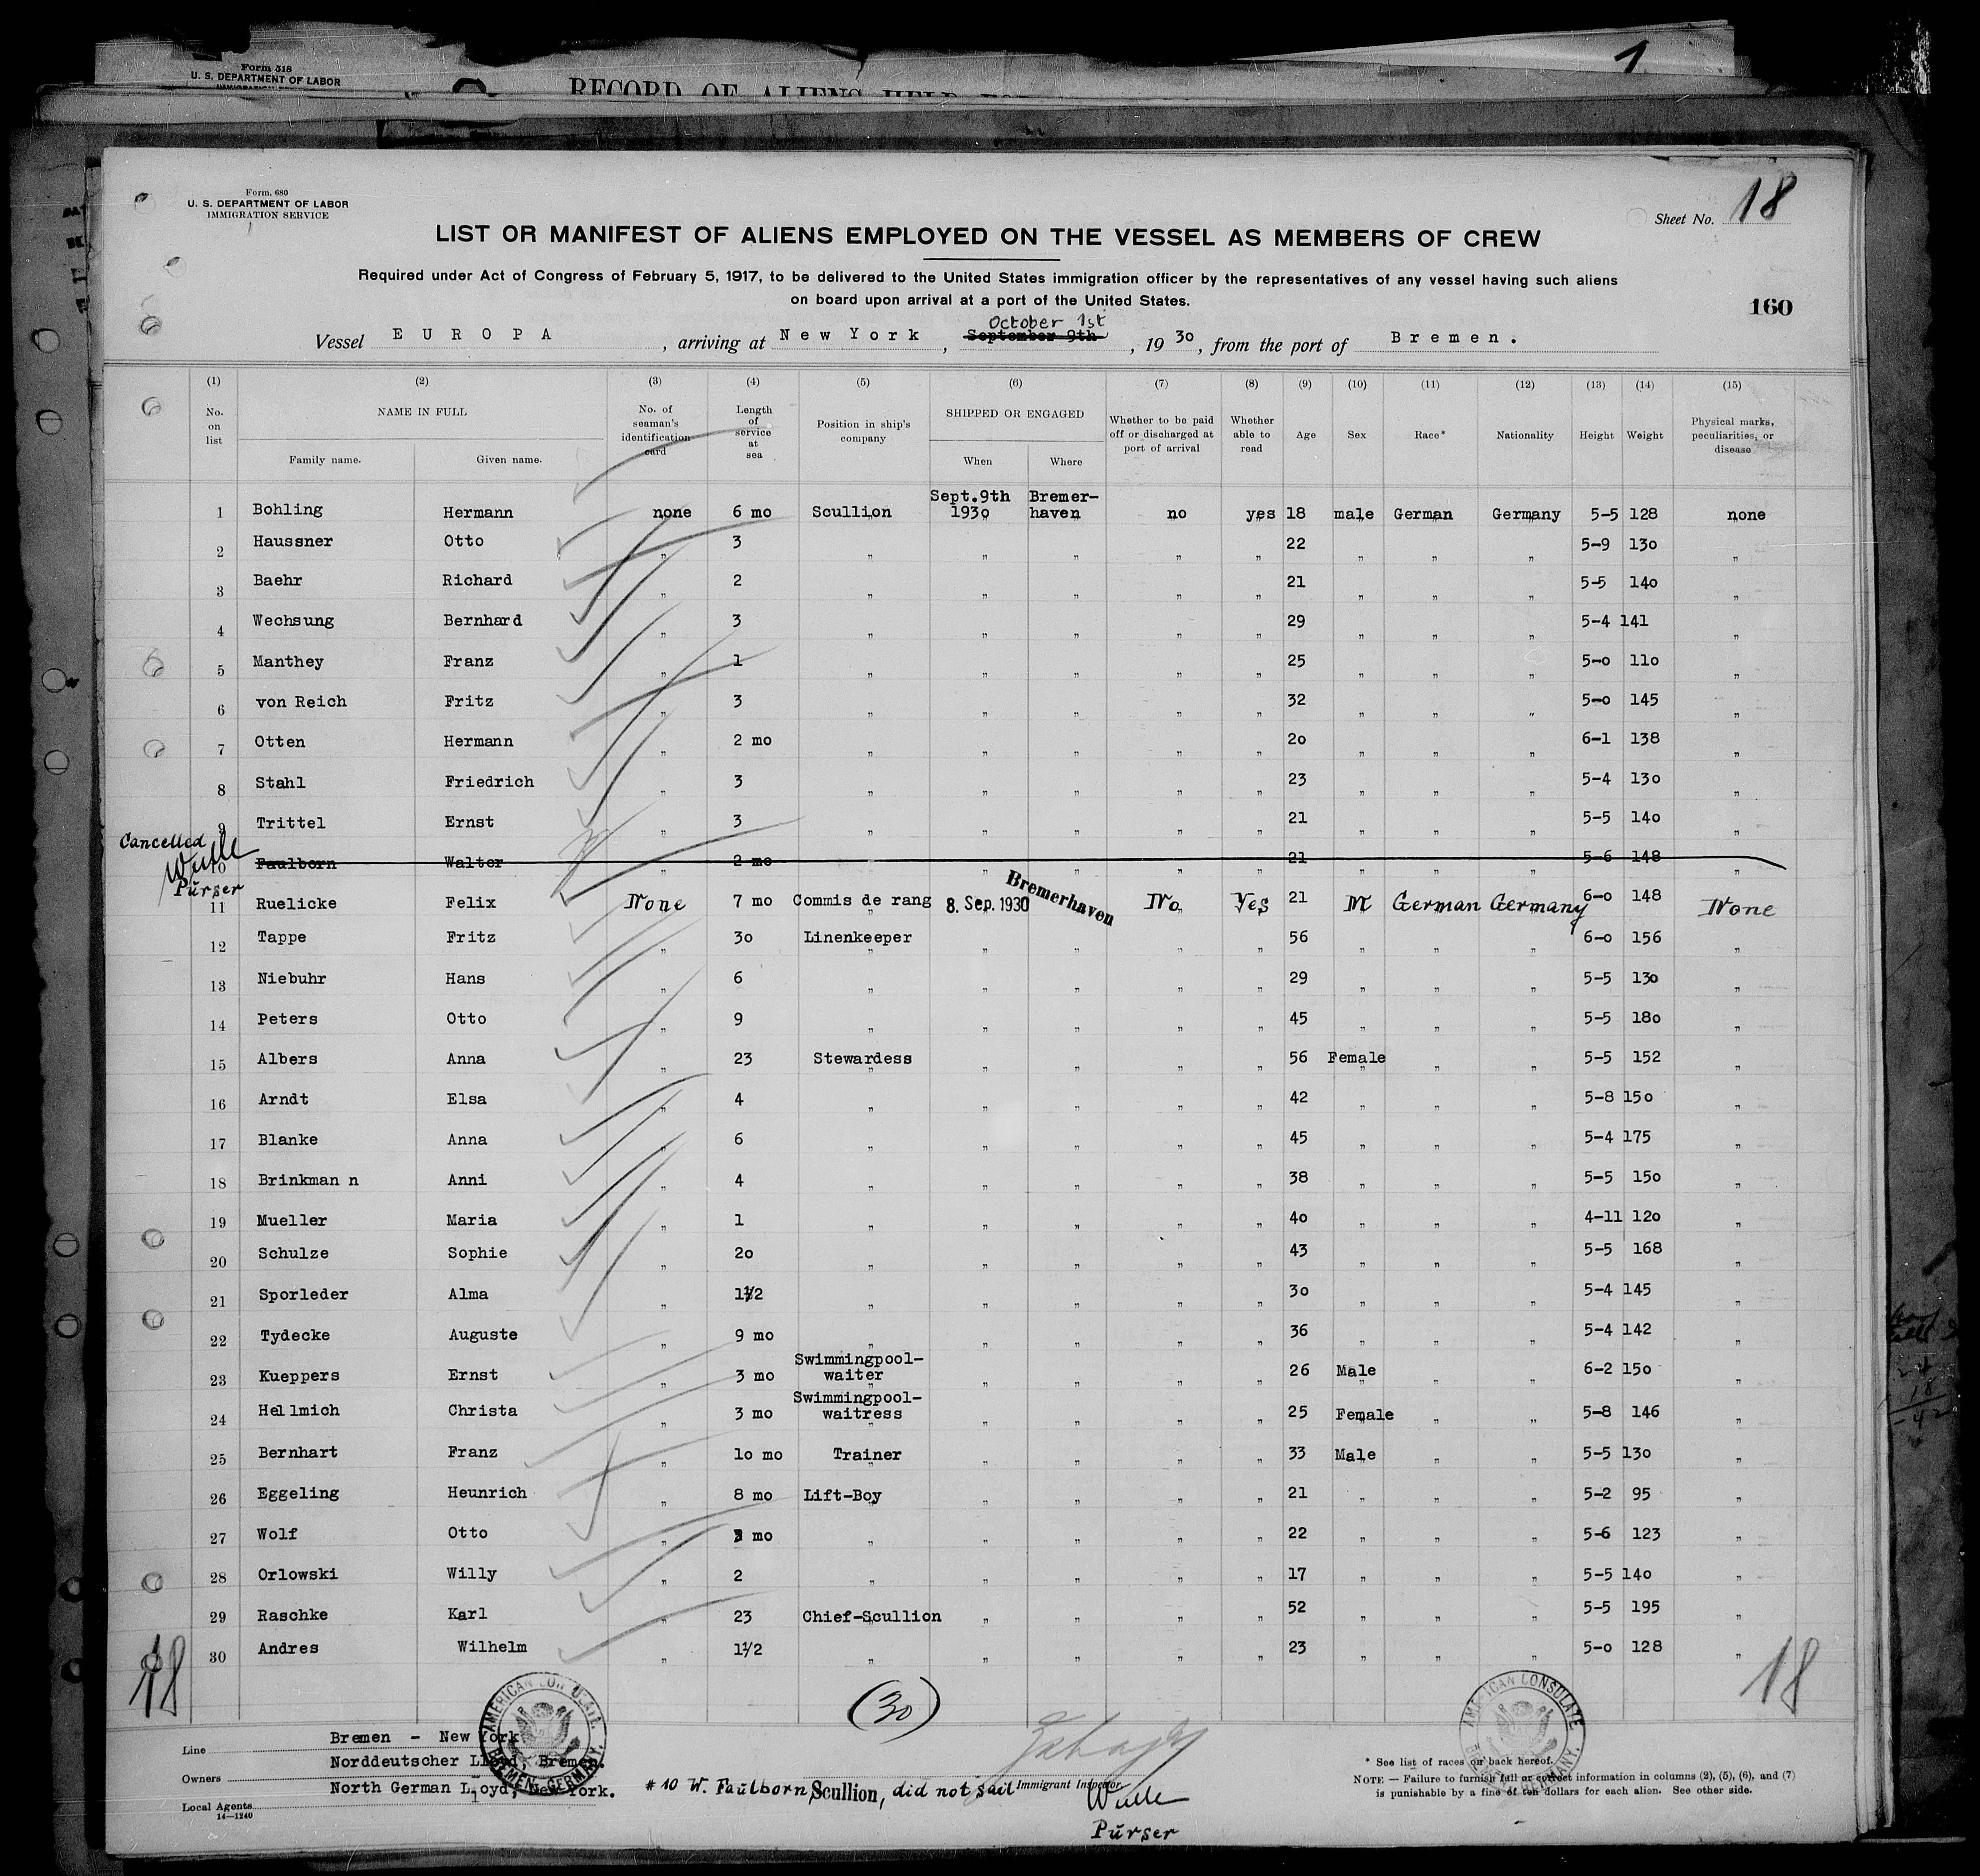 Form 518
U. S. DEPARTMENT OF LABOR
RECORD OF ALIENS HELD
1
Form. 680
U. S. DEPARTMENT OF LABOR
IMMIGRATION SERVICE
Sheet No. 18
LIST OR MANIFEST OF ALIENS EMPLOYED ON THE VESSEL AS MEMBERS OF CREW
Required under Act of Congress of February 5, 1917, to be delivered to the United States immigration officer by the representatives of any vessel having such aliens
on board upon arrival at a port of the United States.
160
October 1st
Vessel EUROPA, arriving at New York, September 9th, 1930, from the port of Bremen.
(1) (2) (3) (4) (5) (6) (7) (8) (9) (10) (11) (12) (13) (14) (15)
No. on list NAME IN FULL Family name. Given name. No. of seaman's identification card Length of service at sea Position in ship's company SHIPPED OR ENGAGED When Where Whether to be paid off or discharged at port of arrival Whether able to read Age Sex Race* Nationality Height Weight Physical marks, peculiarities, or disease
1 Bohling Hermann none 6 mo Scullion Sept.9th 1930 Bremer-haven no yes 18 male German Germany 5-5 128 none
2 Haussner Otto " 3 " " " " " 22 " " " 5-9 130 "
3 Baehr Richard " 2 " " " " " 21 " " " 5-5 140 "
4 Wechsung Bernhard " 3 " " " " " 29 " " " 5-4 141 "
5 Manthey Franz " 1 " " " " " 25 " " " 5-0 110 "
6 von Reich Fritz " 3 " " " " " 32 " " " 5-0 145 "
7 Otten Hermann " 2 mo " " " " " 20 " " " 6-1 138 "
8 Stahl Friedrich " 3 " " " " " 23 " " " 5-4 130 "
9 Trittel Ernst " 3 " " " " " 21 " " " 5-5 140 "
Cancelled
10 Faulborn Walter " 2 mo " " " " " 21 " " " 5-6 148 "
Purser
11 Ruelicke Felix None 7 mo Commis de rang 8. Sep. 1930 Bremerhaven No Yes 21 M German Germany 6-0 148 None
12 Tappe Fritz " 30 Linenkeeper " " " " 56 " " " 6-0 156 "
13 Niebuhr Hans " 6 " " " " " 29 " " " 5-5 130 "
14 Peters Otto " 9 " " " " " 45 " " " 5-5 180 "
15 Albers Anna " 23 Stewardess " " " " 56 Female " " 5-5 152 "
16 Arndt Elsa " 4 " " " " " 42 " " " 5-8 150 "
17 Blanke Anna " 6 " " " " " 45 " " " 5-4 175 "
18 Brinkman n Anni " 4 " " " " " 38 " " " 5-5 150 "
19 Mueller Maria " 1 " " " " " 40 " " " 4-11 120 "
20 Schulze Sophie " 20 " " " " " 43 " " " 5-5 168 "
21 Sporleder Alma " 1 1/2 " " " " " 30 " " " 5-4 145 "
22 Tydecke Auguste " 9 mo " " " " " 36 " " " 5-4 142 "
23 Kueppers Ernst " 3 mo Swimmingpool-waiter " " " " 26 Male " " 6-2 150 "
24 Hellmich Christa " 3 mo Swimmingpool-waitress " " " " 25 Female " " 5-8 146 "
25 Bernhart Franz " 10 mo Trainer " " " " 33 Male " " 5-5 130 "
26 Eggeling Heunrich " 8 mo Lift-Boy " " " " 21 " " " 5-2 95 "
27 Wolf Otto " mo " " " " " 22 " " " 5-6 123 "
28 Orlowski Willy " 2 " " " " " 17 " " " 5-5 140 "
29 Raschke Karl " 23 Chief-Scullion " " " " 52 " " " 5-5 195 "
30 Andres Wilhelm " 1 1/2 " " " " " 23 " " " 5-0 128 "
18
(30)
18
AMERICAN CONSULATE. BREMEN, GERMANY.
AMERICAN CONSULATE BREMEN, GERMANY.
Line Bremen - New York
Owners Norddeutscher Lloyd, Bremen.
Local Agents North German Lloyd, New York.
14—1240
#10 W. Faulborn, Scullion, did not sail
Immigrant Inspector.
Purser
* See list of races on back hereof.
NOTE — Failure to furnish full or correct information in columns (2), (5), (6), and (7)
is punishable by a fine of ten dollars for each alien. See other side.